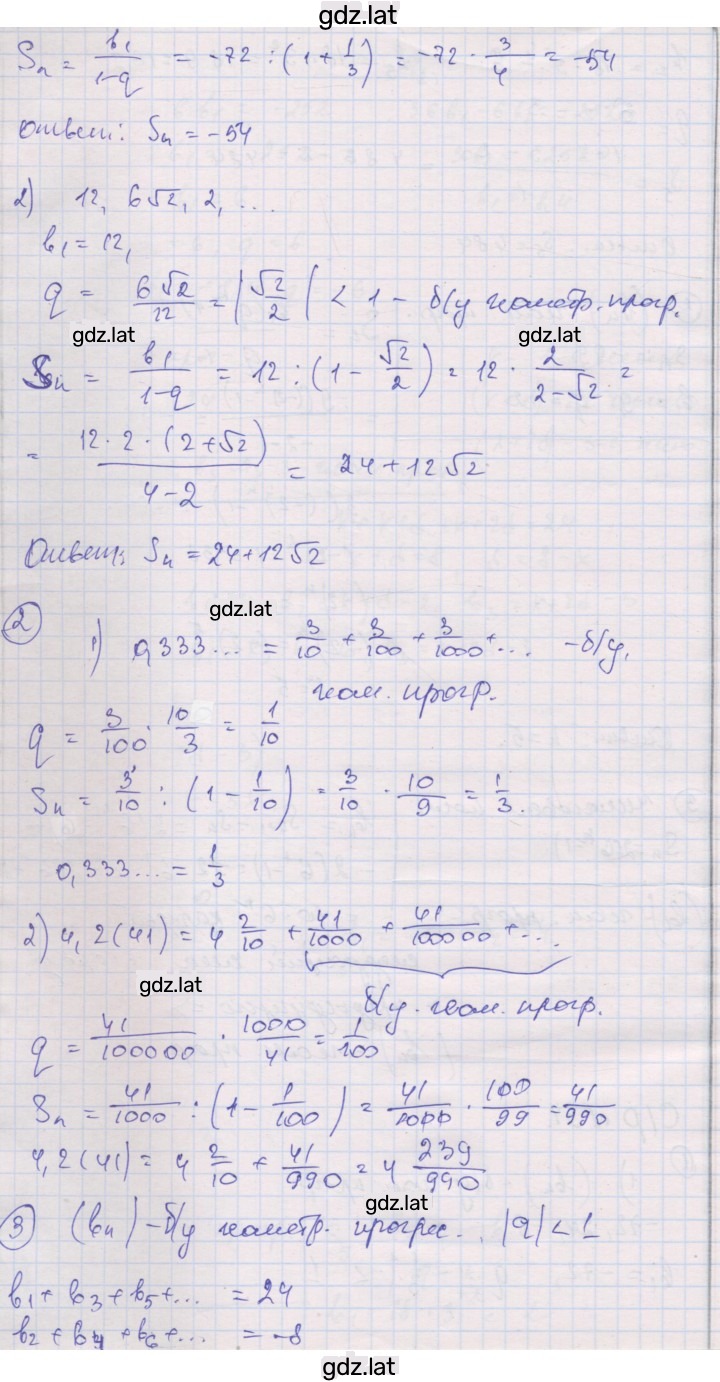 gdz.lat
Sₙ = b₁/(1-q) = -72 : (1 + 1/3) = -72 · 3/4 = -54
Ответ: Sₙ = -54
2) 12, 6√2, 2, ...
b₁ = 12,
q = 6√2/12 = |√2/2| < 1 - б/у геометр. прогр.
gdz.lat gdz.lat
Sₙ = b₁/(1-q) = 12 : (1 - √2/2) = 12 · 2/(2-√2) =
= 12·2·(2+√2)/(4-2) = 24+12√2
Ответ: Sₙ = 24+12√2
gdz.lat
② 1) 0,333... = 3/10 + 3/100 + 3/1000 + ... - б/у.
геом. прогр.
q = 3/100 · 10/3 = 1/10
Sₙ = 3/10 : (1 - 1/10) = 3/10 · 10/9 = 1/3.
0,333... = 1/3
2) 4,2(41) = 4 2/10 + 41/1000 + 41/100000 + ...
gdz.lat
б/у. геом. прогр.
q = 41/100000 · 1000/41 = 1/100
Sₙ = 41/1000 : (1 - 1/100) = 41/1000 · 100/99 = 41/990
4,2(41) = 4 2/10 + 41/990 = 4 239/990
gdz.lat
③ (bₙ) - б/у геометр. прогрес. |q| < 1
b₁ + b₃ + b₅ + ... = 24
b₂ + b₄ + b₆ + ... = -8
gdz.lat